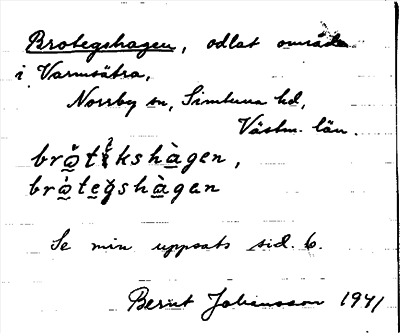 Brotegshagen, odlat område
i Varmsätra,
Norrby sn, Simtuna hd,
Västm. län.
brotekshàgen,
brotegshàgen
Se min uppsats sid. 6.
Bernt Johansson 1941